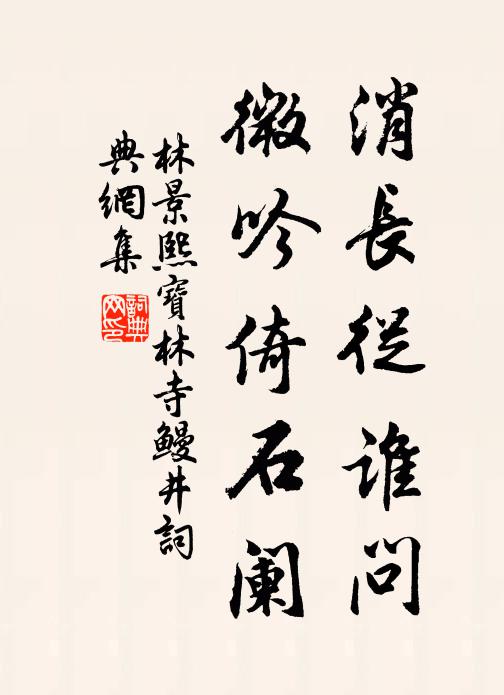 消長從誰問
微吟倚石闌
林景熙寶林寺鰻井詞
典網集
詞典網印